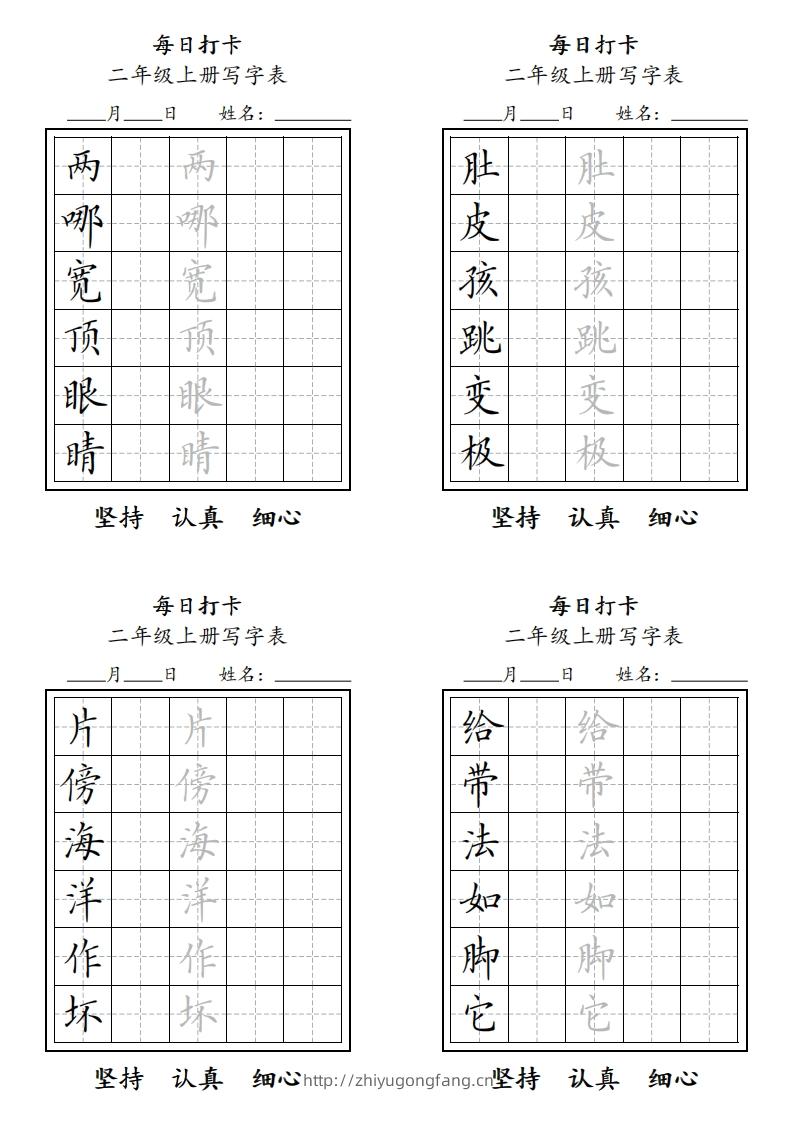 每日打卡
二年级上册写字表
____月____日 姓名：________
两 两
哪 哪
宽 宽
顶 顶
眼 眼
睛 睛
坚持 认真 细心
每日打卡
二年级上册写字表
____月____日 姓名：________
肚 肚
皮 皮
孩 孩
跳 跳
变 变
极 极
坚持 认真 细心
每日打卡
二年级上册写字表
____月____日 姓名：________
片 片
傍 傍
海 海
洋 洋
作 作
坏 坏
坚持 认真 细心
每日打卡
二年级上册写字表
____月____日 姓名：________
给 给
带 带
法 法
如 如
脚 脚
它 它
坚持 认真 细心
http://zhiyugongfang.cn